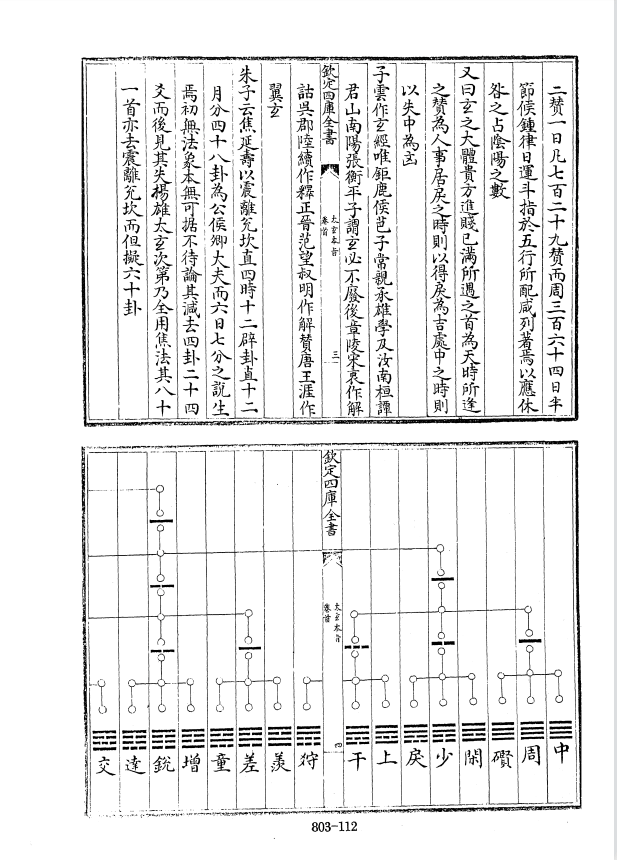 二賛一日凡七百二十九賛而周三百六十四日半
節候鍾律日運斗指於五行所配咸列著焉以應休
咎之占陰陽之數
又曰玄之大體貴方進賤已滿所遇之首為天時所逢
之賛為人事居戾之時則以得戾為吉處中之時則
以失中為凶
子雲作玄經唯鉅鹿侯芭子常親承雄學及汝南桓譚
君山南陽張衡平子謂玄必不廢後章陵宋衷作解
欽定四庫全書
太玄本旨
卷首
三
詁呉郡陸績作釋正晉范望叔明作解賛唐王涯作
翼玄
朱子云焦延壽以震離兌坎直四時十二辟卦直十二
月分四十八卦為公侯卿大夫而六日七分之說生
焉初無法象本無可据不待論其減去四卦二十四
爻而後見其失楊雄太玄次第乃全用焦法其八十
一首亦去震離兌坎而但擬六十卦
中
周
礥
閑
少
戾
上
干
欽定四庫全書
太玄本旨
卷首
四
狩
羨
差
童
增
銳
達
交
803-112